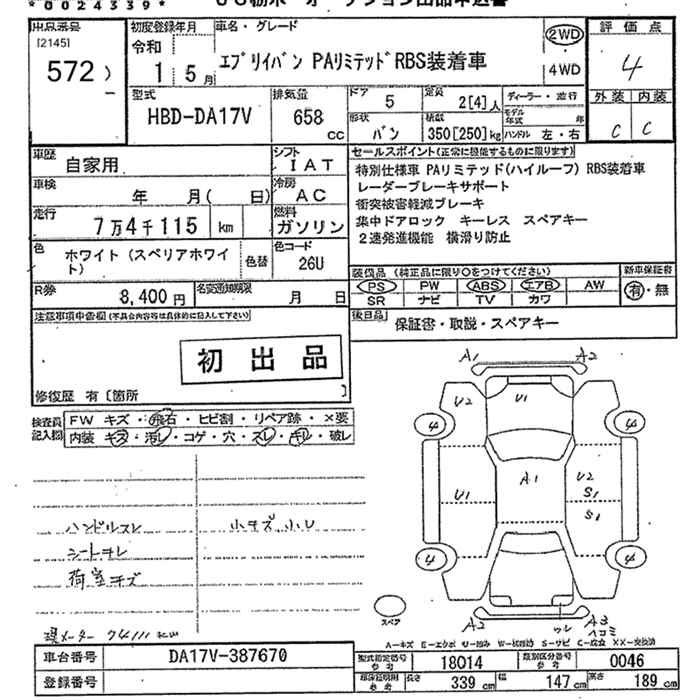 *0024339*
出品番号
[2145]
572
初度登録年月
令和
1 5月
車名・グレード
エブリイバン PAリミテッド RBS装着車
2WD
4WD
評価点
4
外装 内装
C C
型式
HBD-DA17V
排気量
658
cc
ドア
5
定員
2[4]人
形状
バン
積載
350[250]kg
ディーラー・並行
モデル年式 年
ハンドル 左・右
車歴
自家用
シフト
IAT
車検
年 月( 日)
冷房
AC
走行
7万4千115 km
燃料
ガソリン
色
ホワイト(スペリアホワイト)
色替
色コード
26U
R券
8,400円
名変通知期限
月 日
セールスポイント(正常に機能するものに限ります)
特別仕様車 PAリミテッド(ハイルーフ) RBS装着車
レーダーブレーキサポート
衝突被害軽減ブレーキ
集中ドアロック キーレス スペアキー
2速発進機能 横滑り防止
装備品 (純正品に限り○をつけてください)
PS PW ABS エアB AW
SR ナビ TV カワ
新車保証書
有・無
後日品
保証書・取説・スペアキー
注意事項申告欄(不具合内容等は具体的に記入して下さい)
初出品
修復歴 有〔箇所 〕
検査員記入欄
FW キズ・飛石・ヒビ割・リペア跡・×要
内装 キズ・汚レ・コゲ・穴・スレ・キレ・破レ
ハンドルスレ
小キズ小レ
シートヨレ
荷室キズ
現メーター 74111 km
A1 A2
U2 U1
4 4
U1 A1 U2
S1
S1
4 4
スペア
A2 ワレ A3
ヘコミ
A-キズ E-エクボ U-凹み W-板金跡 S-サビ C-腐食 XX-交換済
車台番号
DA17V-387670
登録番号
型式指定番号
参考
18014
類別区分番号
参考
0046
参考
長さ 339 cm 幅 147 cm 高さ 189 cm